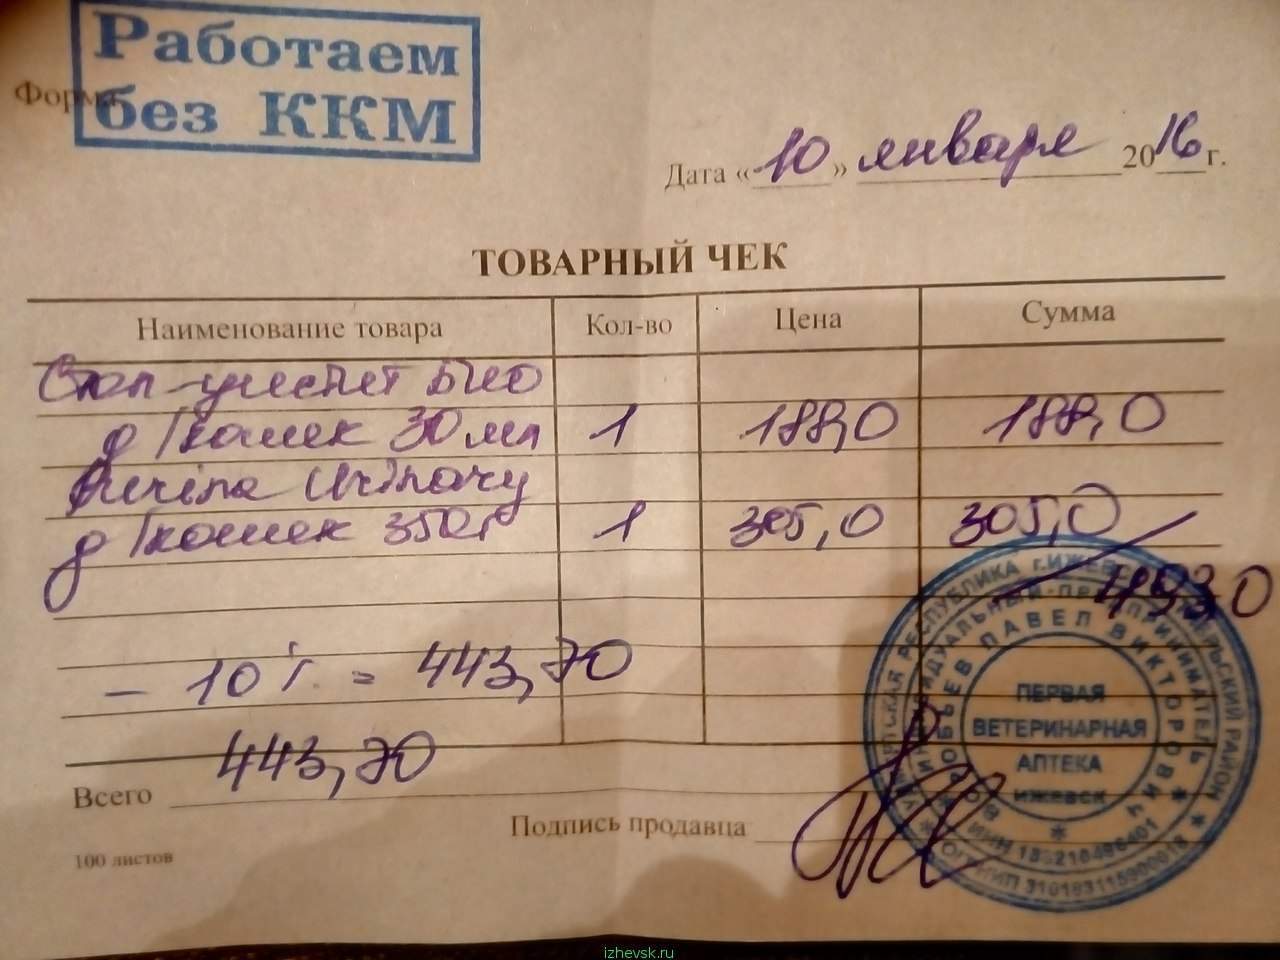 Работаем
без ККМ
Форма
Дата «10» января 2016 г.
ТОВАРНЫЙ ЧЕК
Наименование товара Кол-во Цена Сумма
Стоп-цистит Био
д/кошек 30 мл 1 188,0 188,0
Purina Urinary
д/кошек 350г 1 305,0 305,0
493,0
- 10% = 443,70
Всего 443,70
Подпись продавца
100 листов
УДМУРТСКАЯ РЕСПУБЛИКА г.ИЖЕВСК РАЙОН
ИНДИВИДУАЛЬНЫЙ ПРЕДПРИНИМАТЕЛЬ
ВОРОБЬЕВ ПАВЕЛ ВИКТОРОВИЧ
ПЕРВАЯ
ВЕТЕРИНАРНАЯ
АПТЕКА
ИЖЕВСК
ИНН
ОГРНИП
izhevsk.ru